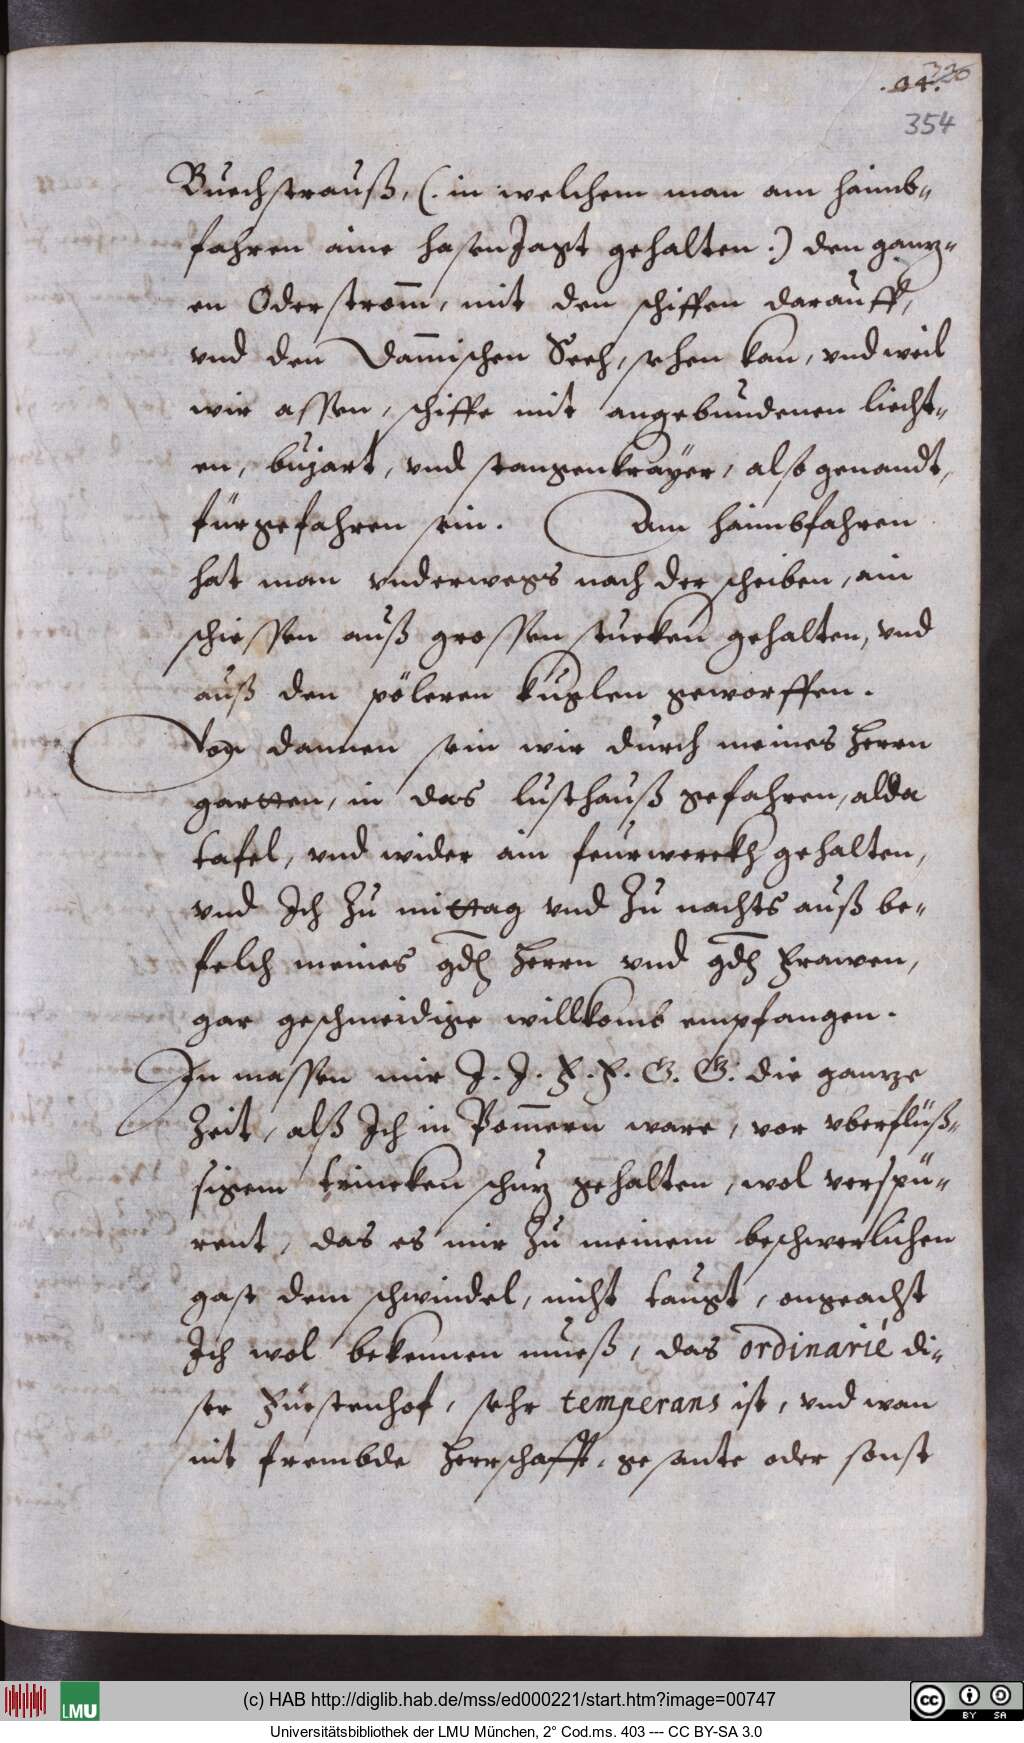 .34. 326
354
Buechstrauß, (. in welchem man am haimb-
fahren aine hasenJagt gehalten .) den gantz-
en Oderstrom̄, mit den schiffen darauff,
vnd den Dam̄ischen Seeh, sehen kan, vnd weil
wir assen, schiffe mit angebundenen liecht-
en, bujart, vnd stangenkräyer, also genandt,
fürgefahren sein. Am haimbfahren
hat man vnderwegs nach der scheiben, ain
schiessen auß grossen stucken gehalten, vnd
auß den pöleren kuglen geworffen.
Von dannen sein wir durch meines herrn
gartten, in das lusthauß gefahren, alda
tafel, vnd wider ain feurwerckh gehalten,
vnd Ich zu mittag vnd zu nachts auß be-
felch meines gd̄h herrn vnd gd̄h Frawen,
gar geschmeidige willkomb empfangen.
In massen mir J. J. F. F. G. G. die gantze
Zeit, alß Ich in Pom̄ern ware, vor vberflüß-
sigem trincken schutz gehalten, wol verspü-
rent, das es mir zu meinem beschwerlichen
gast dem schwindel, nicht taugt, ongeacht
Ich wol bekennen mueß, das ordinariè di-
ser Fürstenhof, sehr temperans ist, vnd wan
nit frembde herrschafft, gesante oder sonst
(c) HAB http://diglib.hab.de/mss/ed000221/start.htm?image=00747
LMU
BY SA
Universitätsbibliothek der LMU München, 2° Cod.ms. 403 --- CC BY-SA 3.0